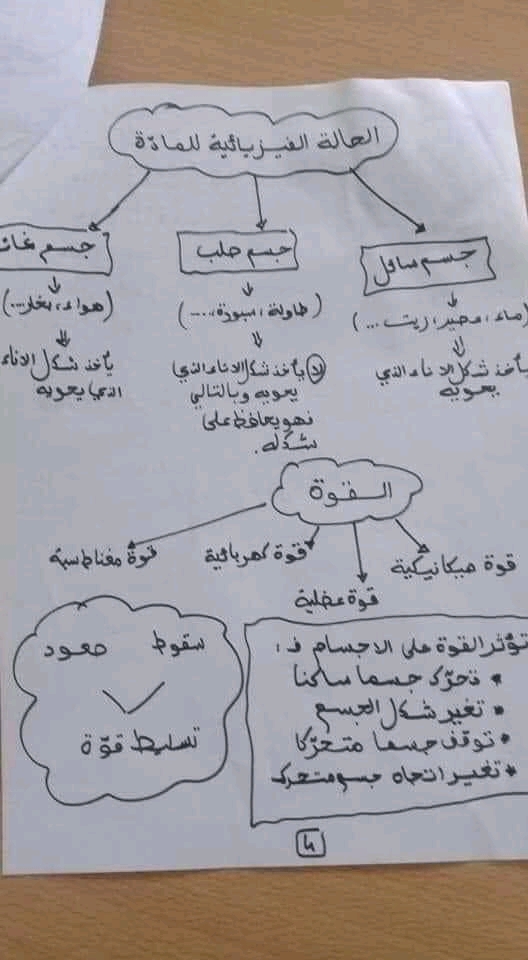 الحالة الفيزيائية للمادّة
جسم سائل
(ماء، عصير، زيت ...)
يأخذ شكل الاناء الذي
يحويه
جسم صلب
(طاولة، سبورة، ...)
(لا) يأخذ شكل الاناء الذي
يحويه وبالتالي
فهو يحافظ على
شكله.
جسم
(هواء، بخار ...)
يأخذ شكل الاناء
الذي يحويه
القوة
قوة ميكانيكية
قوة عضلية
قوة كهربائية
قوة مغناطسية
تؤثر القوة على الاجسام ف:
• تحرّك جسما ساكنا
• تغير شكل الجسم
• توقف جسما متحرّكا
• تغير اتجاه جسم متحرك
سقوط صعود
تسليط قوّة
4